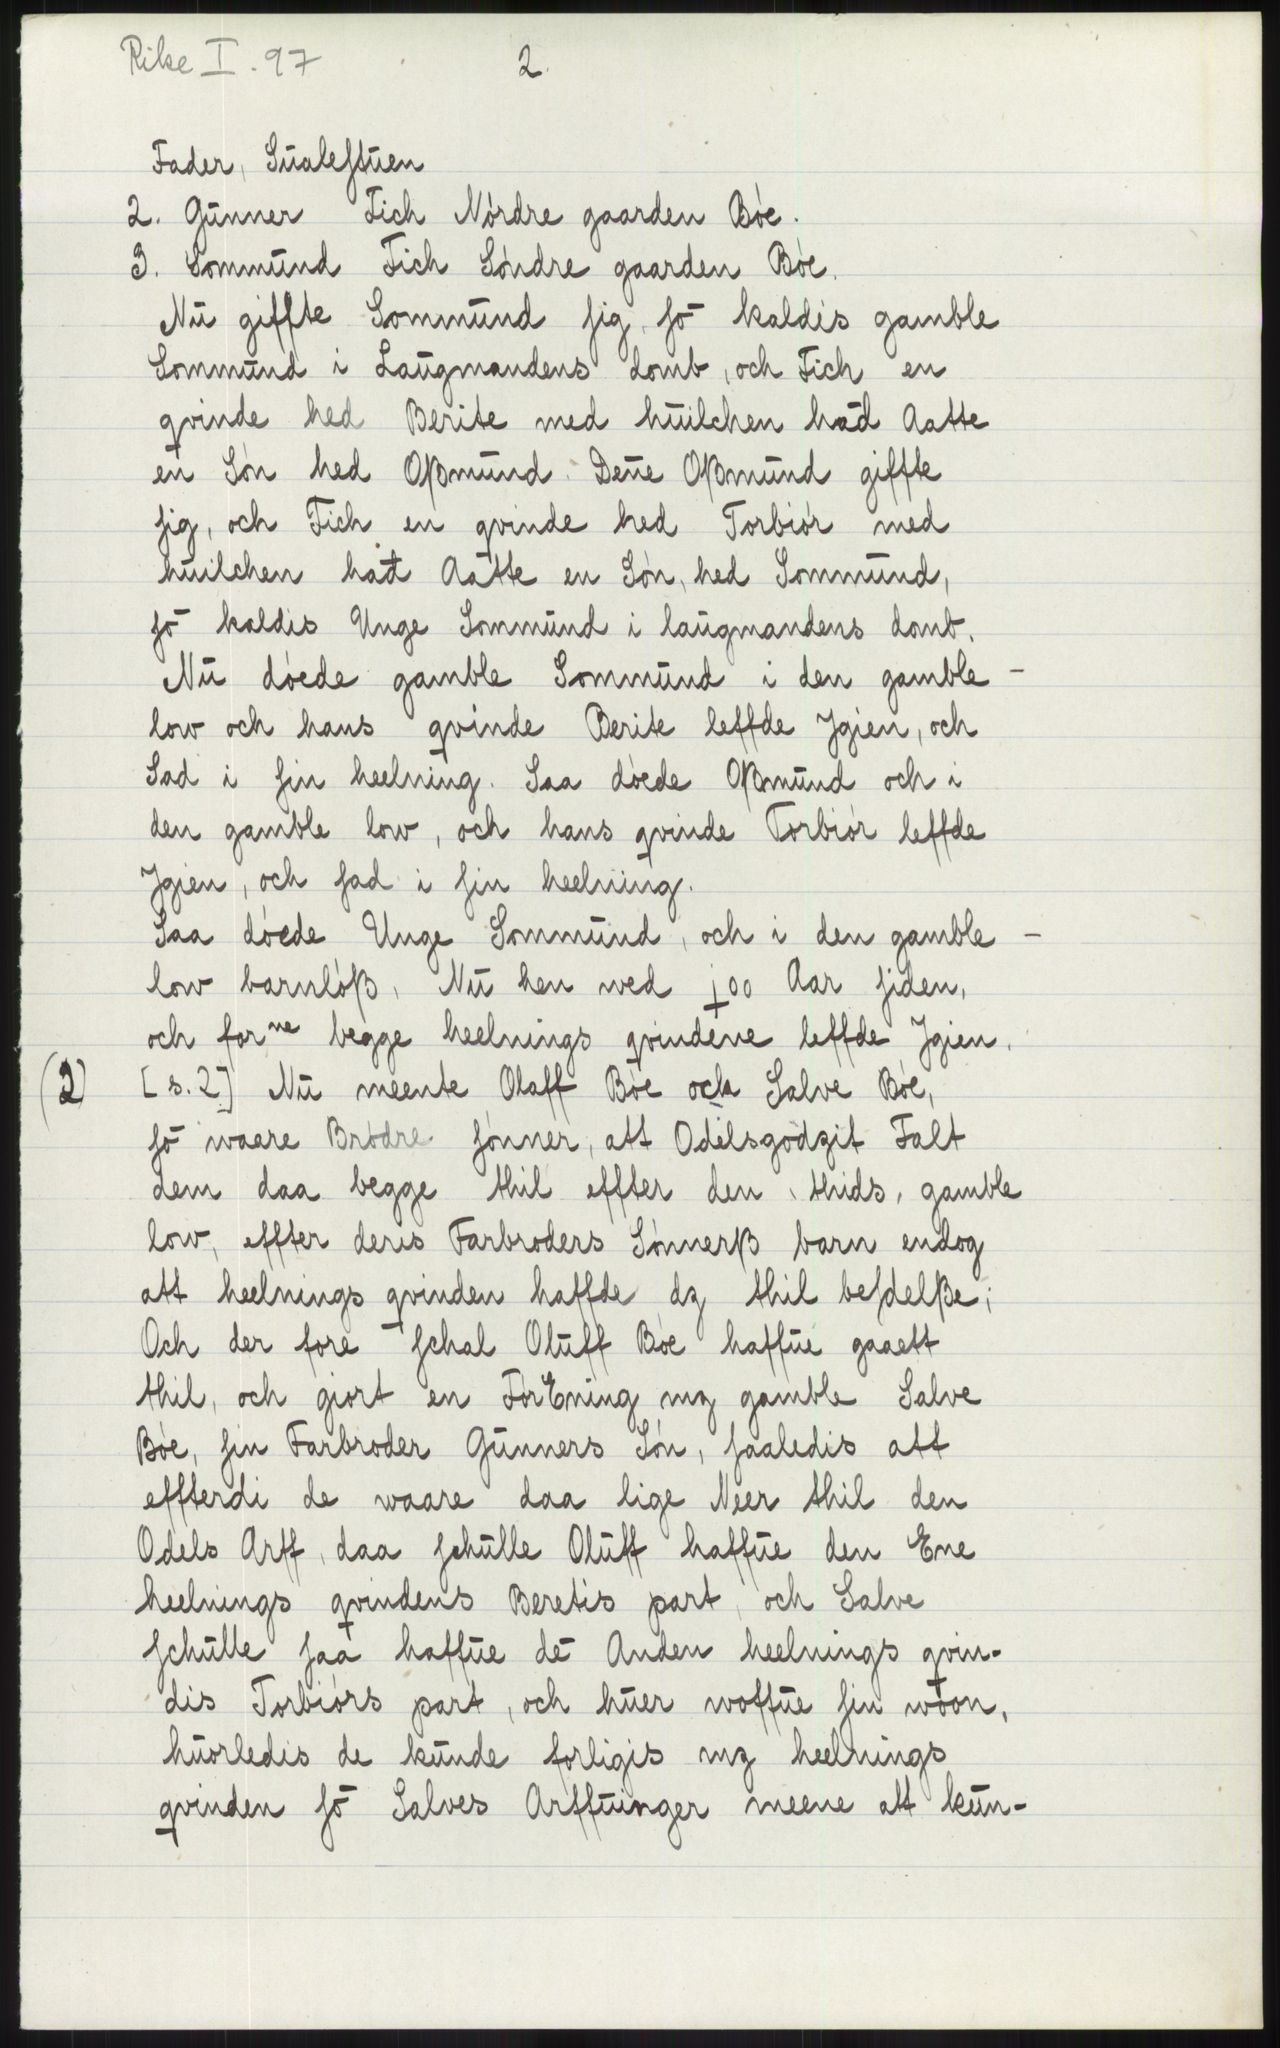 Rike I. 97
2.
Fader, Sualestuen
2. Gunner Fich Nórdre gaarden Bóe.
3. Sommund Fich Sóndre gaarden Bóe.
Nu giffte Sommund sig, so̅ kaldis gamble
Sommund i Laugmandens domb, och Fich en
qvinde hed Berite med huilchen had Aatte
en Són hed Oßmund. Den̅e Oßmund giffte
sig, och Fich en qvinde hed Torbiór med
huilchen had Aatte en Són, hed Sommund,
so̅ kaldis Unge Sommund i laugmandens domb.
Nu dóede gamble Sommund i den gamble -
low och hans qvinde Berite leffde Jgien, och
Sad i sin heelning. Saa dóede Oßmund och i
den gamble low, och hans qvinde Torbiór leffde
Jgien, och sad i sin heelning.
Saa dóede Unge Sommund, och i den gamble -
low barnlóß, Nu hen wed j00 Aar siden,
och forⁿᵉ begge heelnings qvindene leffde Jgien.
(2) [s. 2] Nu meente Olaff Bóe och Salve Bóe,
so̅ waare Bródre sónner, att Odelsgodzit Falt
dem daa begge thil effter den thids, gamble
low, effter deris Farbroders Sónnerß barn endog
att heelnings qvinden haffde dz thil besdelße;
Och der fore schal Oluff Bóe haffue gaaett
thil, och giort en ForEning mz gamble Salve
Bóe, sin Farbroder Gunners Són, saaledis att
effterdi de waare daa lige Neer thil den
Odels Arff, daa schulle Oluff haffue den Ene
heelnings qvindens Beretis part, och Salve
schulle saa haffue de̅ Anden heelnings qvin-
dis Torbiórs part, och huer woffue sin woon,
huorledis de kunde forligis mz heelnings
qvinden so̅ Salves Arffuinger meene att kun-